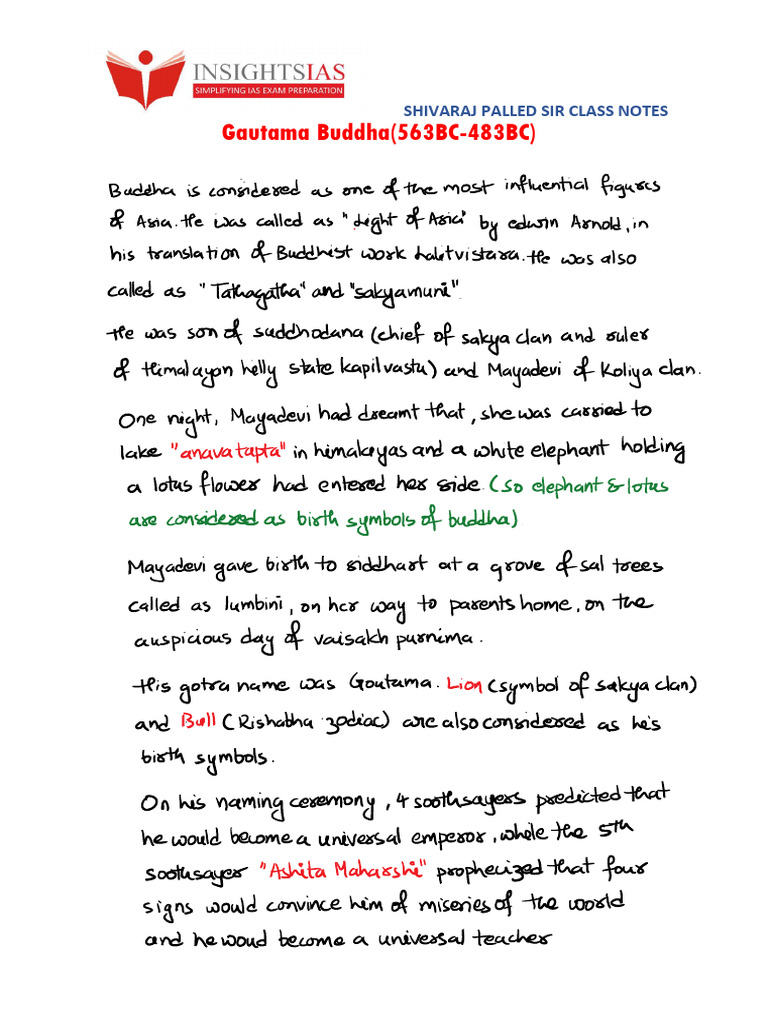 INSIGHTSIAS
SIMPLIFYING IAS EXAM PREPARATION
SHIVARAJ PALLED SIR CLASS NOTES
Gautama Buddha(563BC-483BC)
Buddha is considered as one of the most influential figures
of Asia. He was called as "Light of Asia" by edwin Arnold, in
his translation of Buddhist work Lalitvistara. He was also
called as "Tathagatha" and "sakyamuni".
He was son of suddhodana (chief of sakya clan and ruler
of Himalayan helly state kapilvastu) and Mayadevi of Koliya clan.
One night, Mayadevi had dreamt that, she was carried to
lake "anavatapta" in himalayas and a white elephant holding
a lotus flower had entered her side. (so elephant & lotus
are considered as birth symbols of buddha)
Mayadevi gave birth to siddhart at a grove of sal trees
called as lumbini, on her way to parents home, on the
auspicious day of vaisakh purnima.
His gotra name was Goutama. Lion (symbol of sakya clan)
and Bull (Rishabha zodiac) are also considered as his
birth symbols.
On his naming ceremony, 4 soothsayers predicted that
he would become a universal emperor, while the 5th
soothsayer "Ashita Maharshi" prophecized that four
signs would convince him of miseries of the world
and he woud become a universal teacher